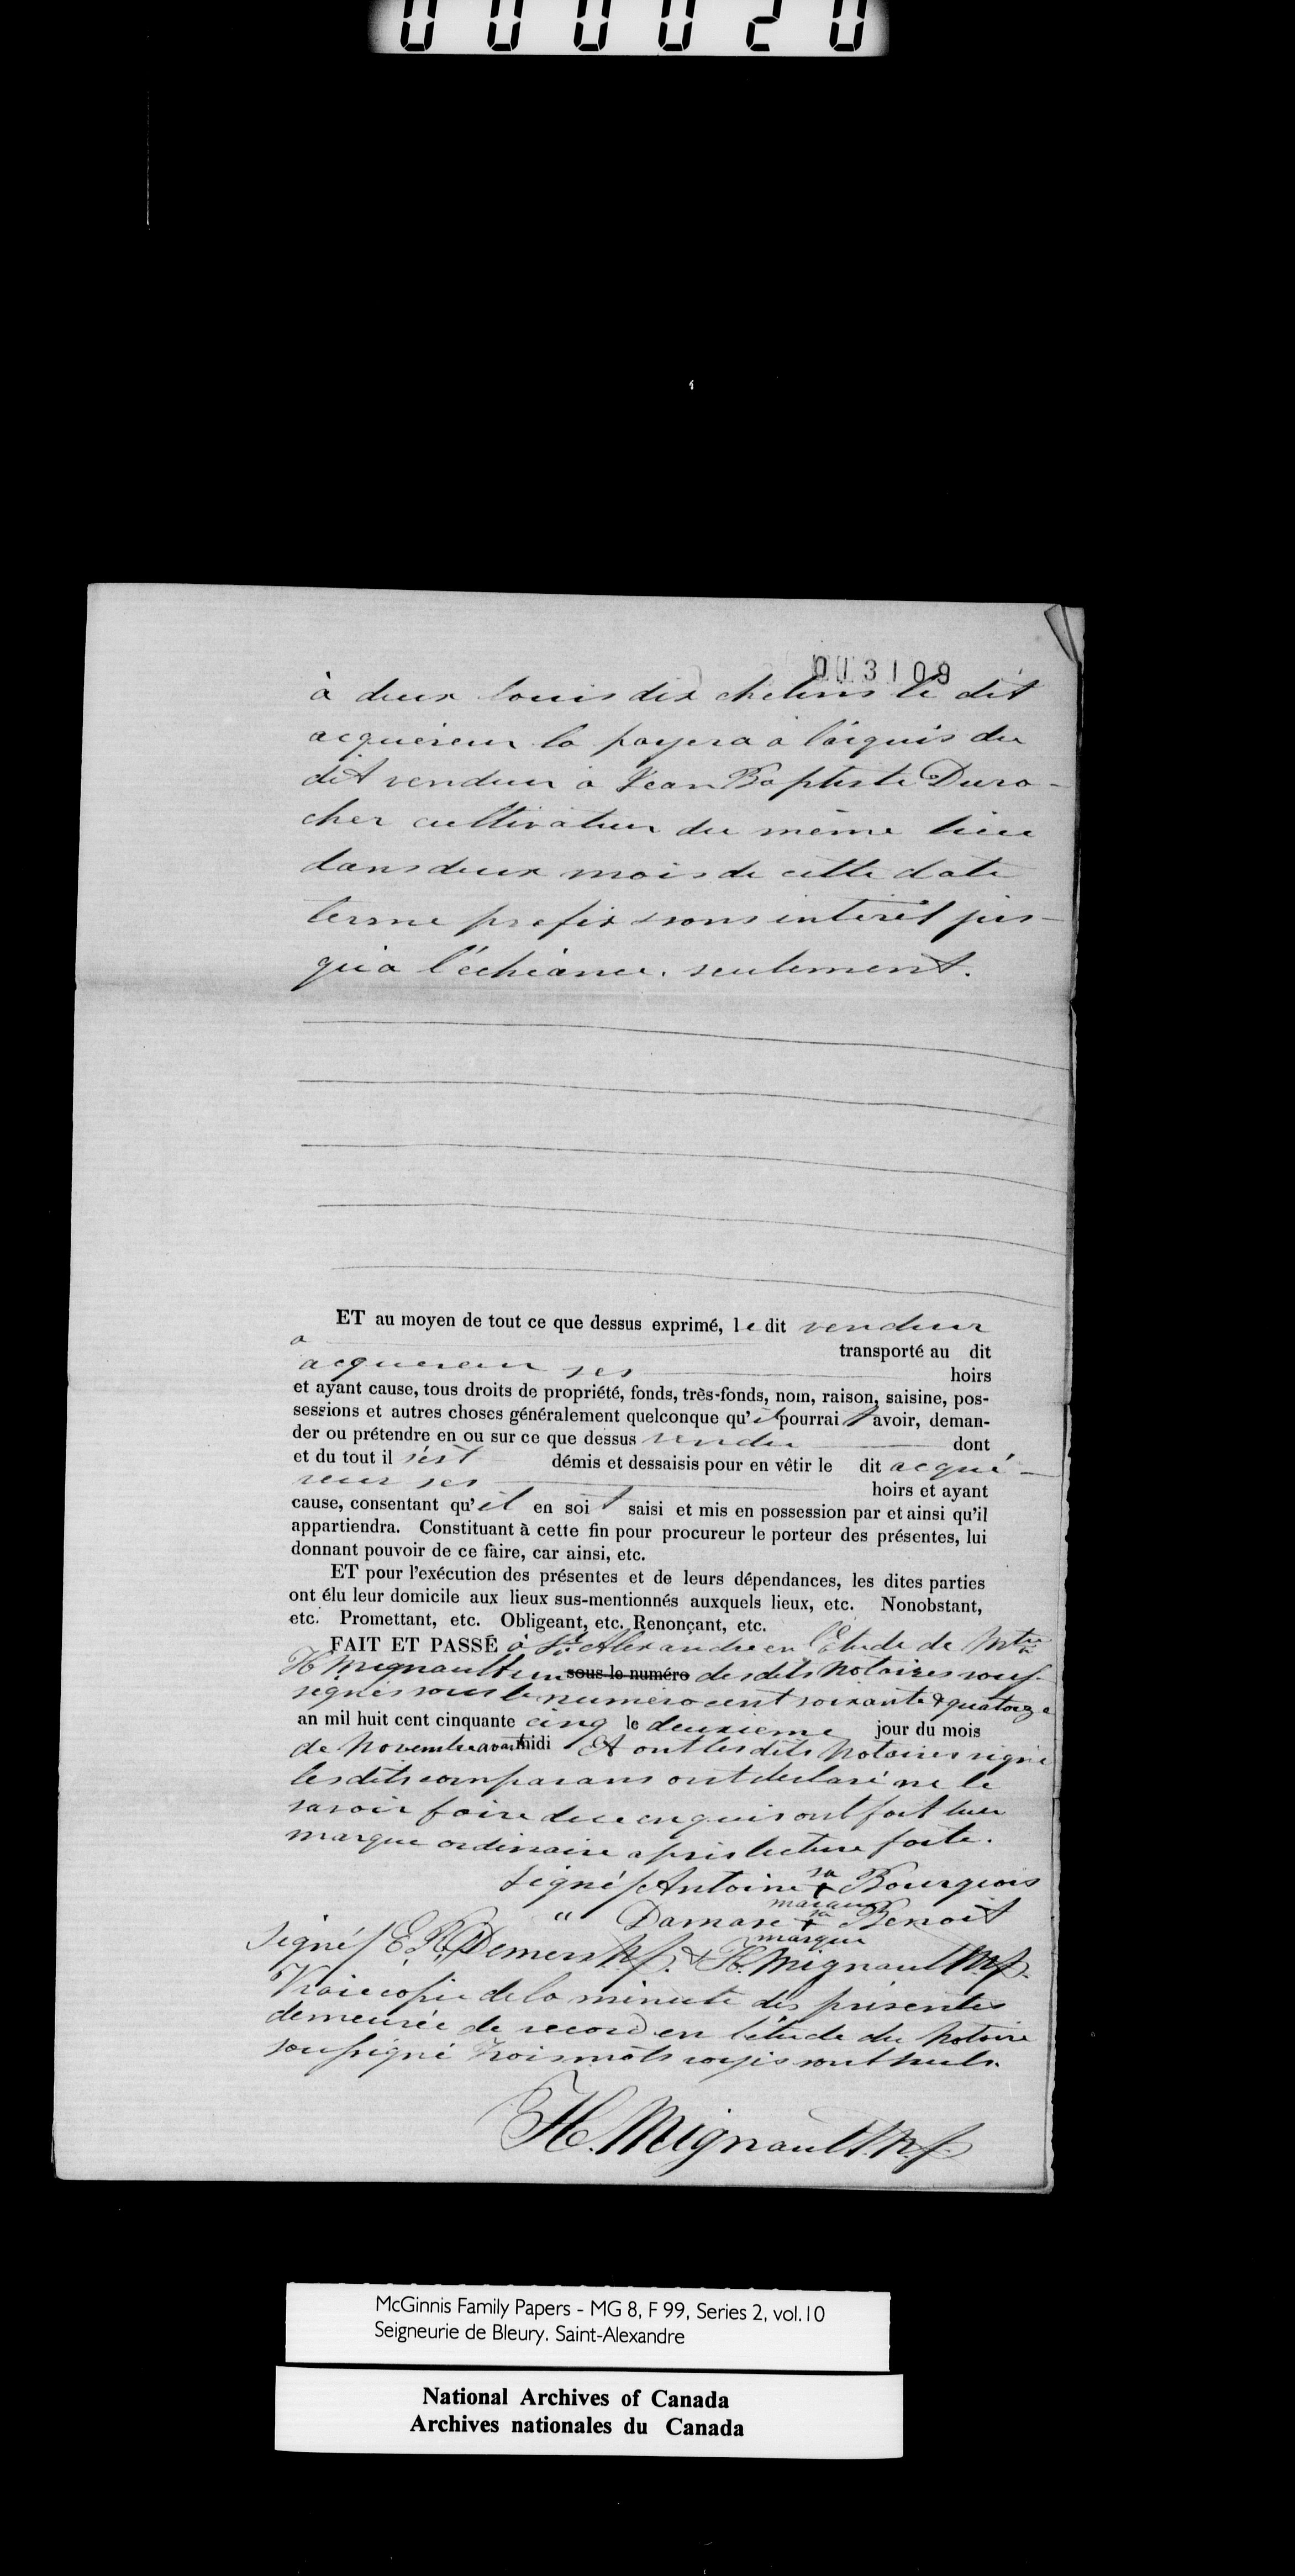 000020
003109
à deux louis dix chelins le dit
acquéreur la payera à l'acquis du
dit vendeur à Jean Baptiste Duro-
cher cultivateur du même lieu
dans deux mois de cette date
terme préfix sans intérêt jus-
qu'à l'échéance. seulement.
ET au moyen de tout ce que dessus exprimé, le dit vendeur
a transporté au dit
acquereur ses hoirs
et ayant cause, tous droits de propriété, fonds, très-fonds, nom, raison, saisine, pos-
sessions et autres choses généralement quelconque qu'il pourrait avoir, deman-
der ou prétendre en ou sur ce que dessus vendu dont
et du tout il s'est démis et dessaisis pour en vêtir le dit acqué-
reur ses hoirs et ayant
cause, consentant qu'il en soit saisi et mis en possession par et ainsi qu'il
appartiendra. Constituant à cette fin pour procureur le porteur des présentes, lui
donnant pouvoir de ce faire, car ainsi, etc.
ET pour l'exécution des présentes et de leurs dépendances, les dites parties
ont élu leur domicile aux lieux sus-mentionnés auxquels lieux, etc. Nonobstant,
etc. Promettant, etc. Obligeant, etc. Renonçant, etc.
FAIT ET PASSÉ à St. Alexandre en l'Etude de Mtre
H Mignault un sous le numéro des dits Notaires sous-
signés sous le numéro cent soixante & quatorze
an mil huit cent cinquante cinq le deuxieme jour du mois
de Novembre avant midi Et ont les dits Notaires signé
les dits comparans ont déclaré ne le
savoir faire de ce enquis ont fait leur
marque ordinaire après lecture faite.
Signé/ Antoine sa + marque Bourgeois
" Damase sa + marque Benoit
Signé/ E. R. Demers N.P. & H. Mignault N.P.
Vraie copie de la minute des présentes
demeurée de record en l'étude du Notaire
soussigné trois mots rayés sont nuls.
H. Mignault N.P.
McGinnis Family Papers - MG 8, F 99, Series 2, vol.10
Seigneurie de Bleury. Saint-Alexandre
National Archives of Canada
Archives nationales du Canada